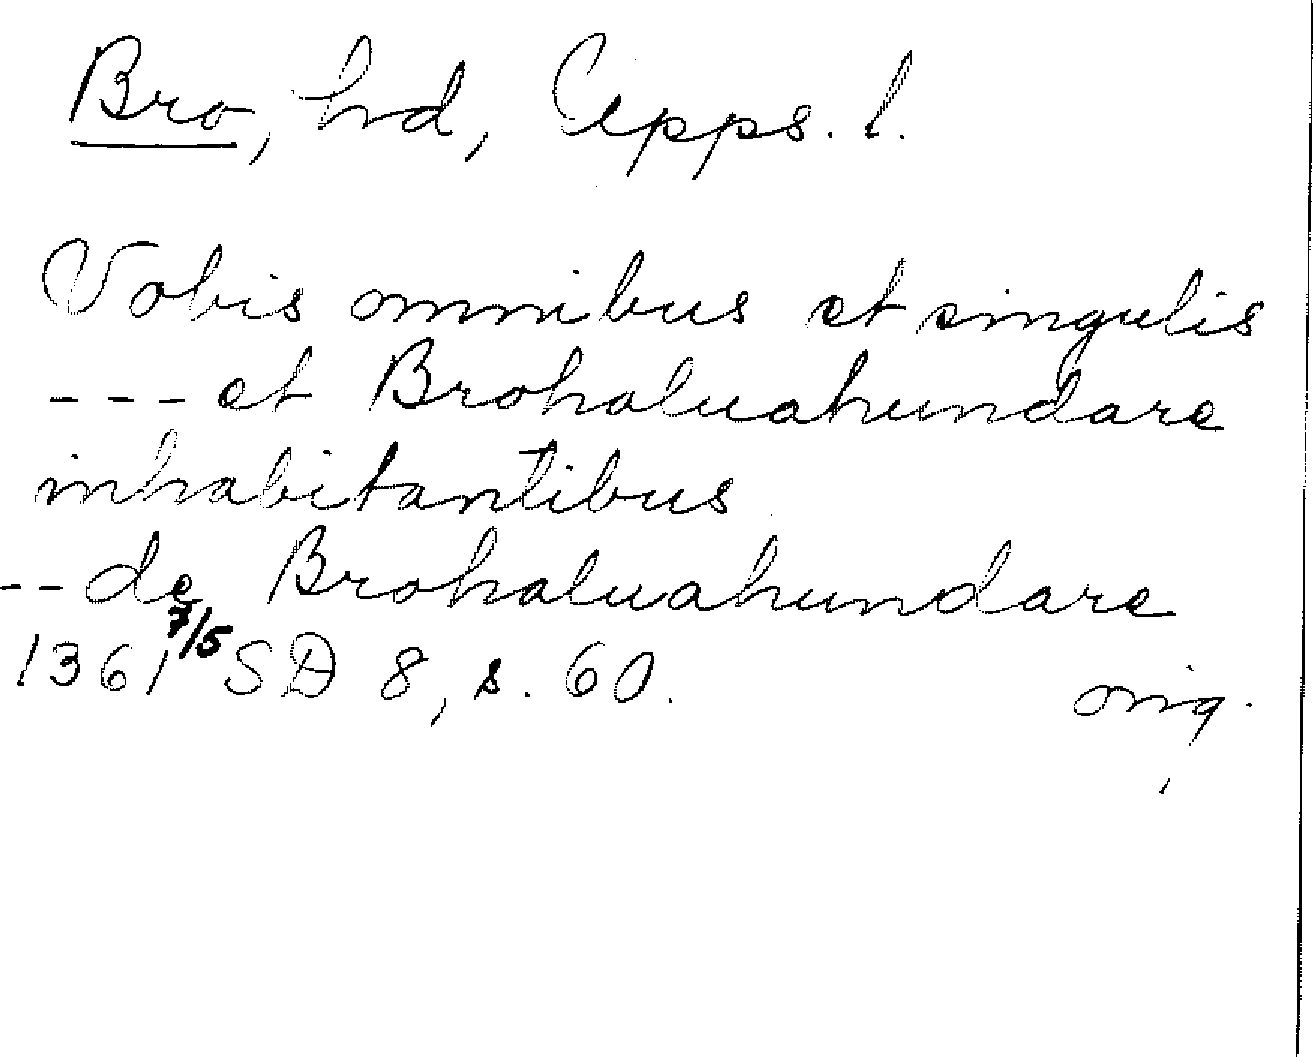 Bro, hd, Upps. l.
Vobis omnibus et singulis
--- et Brohaluahundare
inhabitantibus
-- de Brohaluahundare
1361 7/5 SD 8, s. 60.
orig.